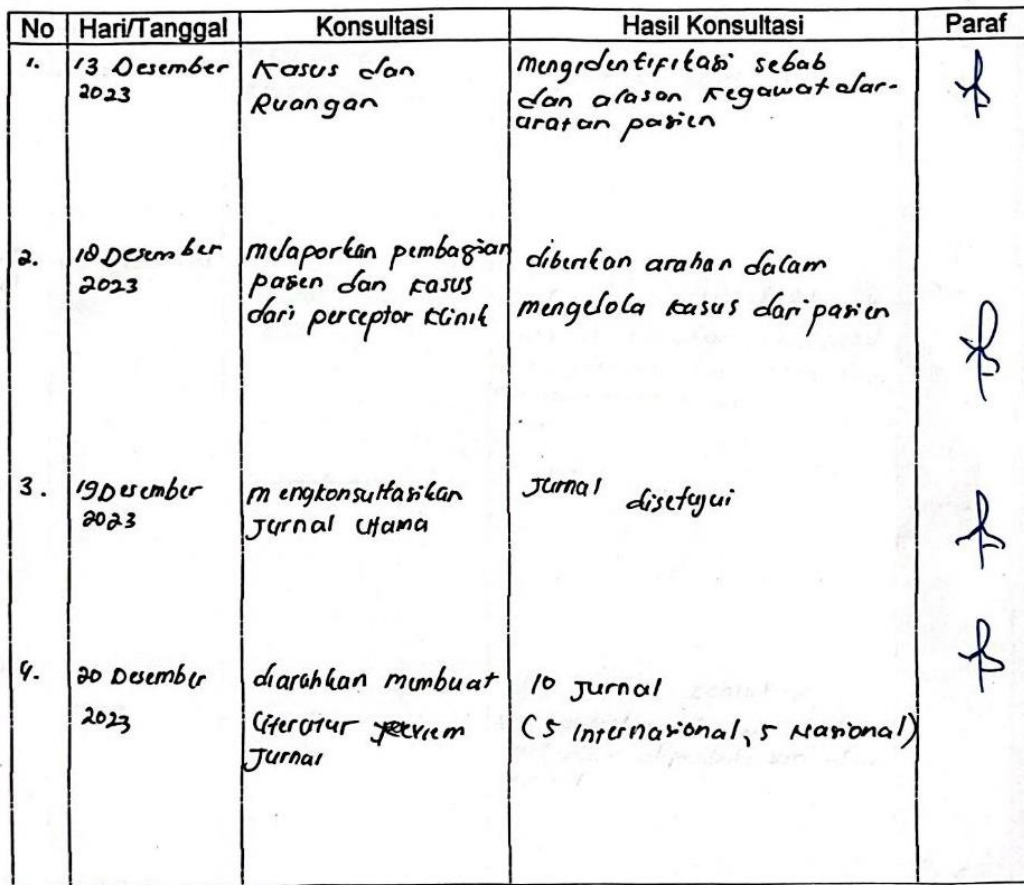 No Hari/Tanggal Konsultasi Hasil Konsultasi Paraf
1. 13 Desember 2023
Kasus dan
Ruangan
mengidentifikasi sebab
dan alasan kegawatdar-
aratan pasien
2. 18 Desember
2023
melaporkan pembagian
pasien dan kasus
dari perceptor klinik
diberikan arahan dalam
mengelola kasus dari pasien
3. 19 Desember
2023
mengkonsultasikan
Jurnal Utama
Jurnal disetujui
4. 20 Desember
2023
diarahkan membuat
literatur
Jurnal
10 Jurnal
(5 Internasional, 5 Nasional)